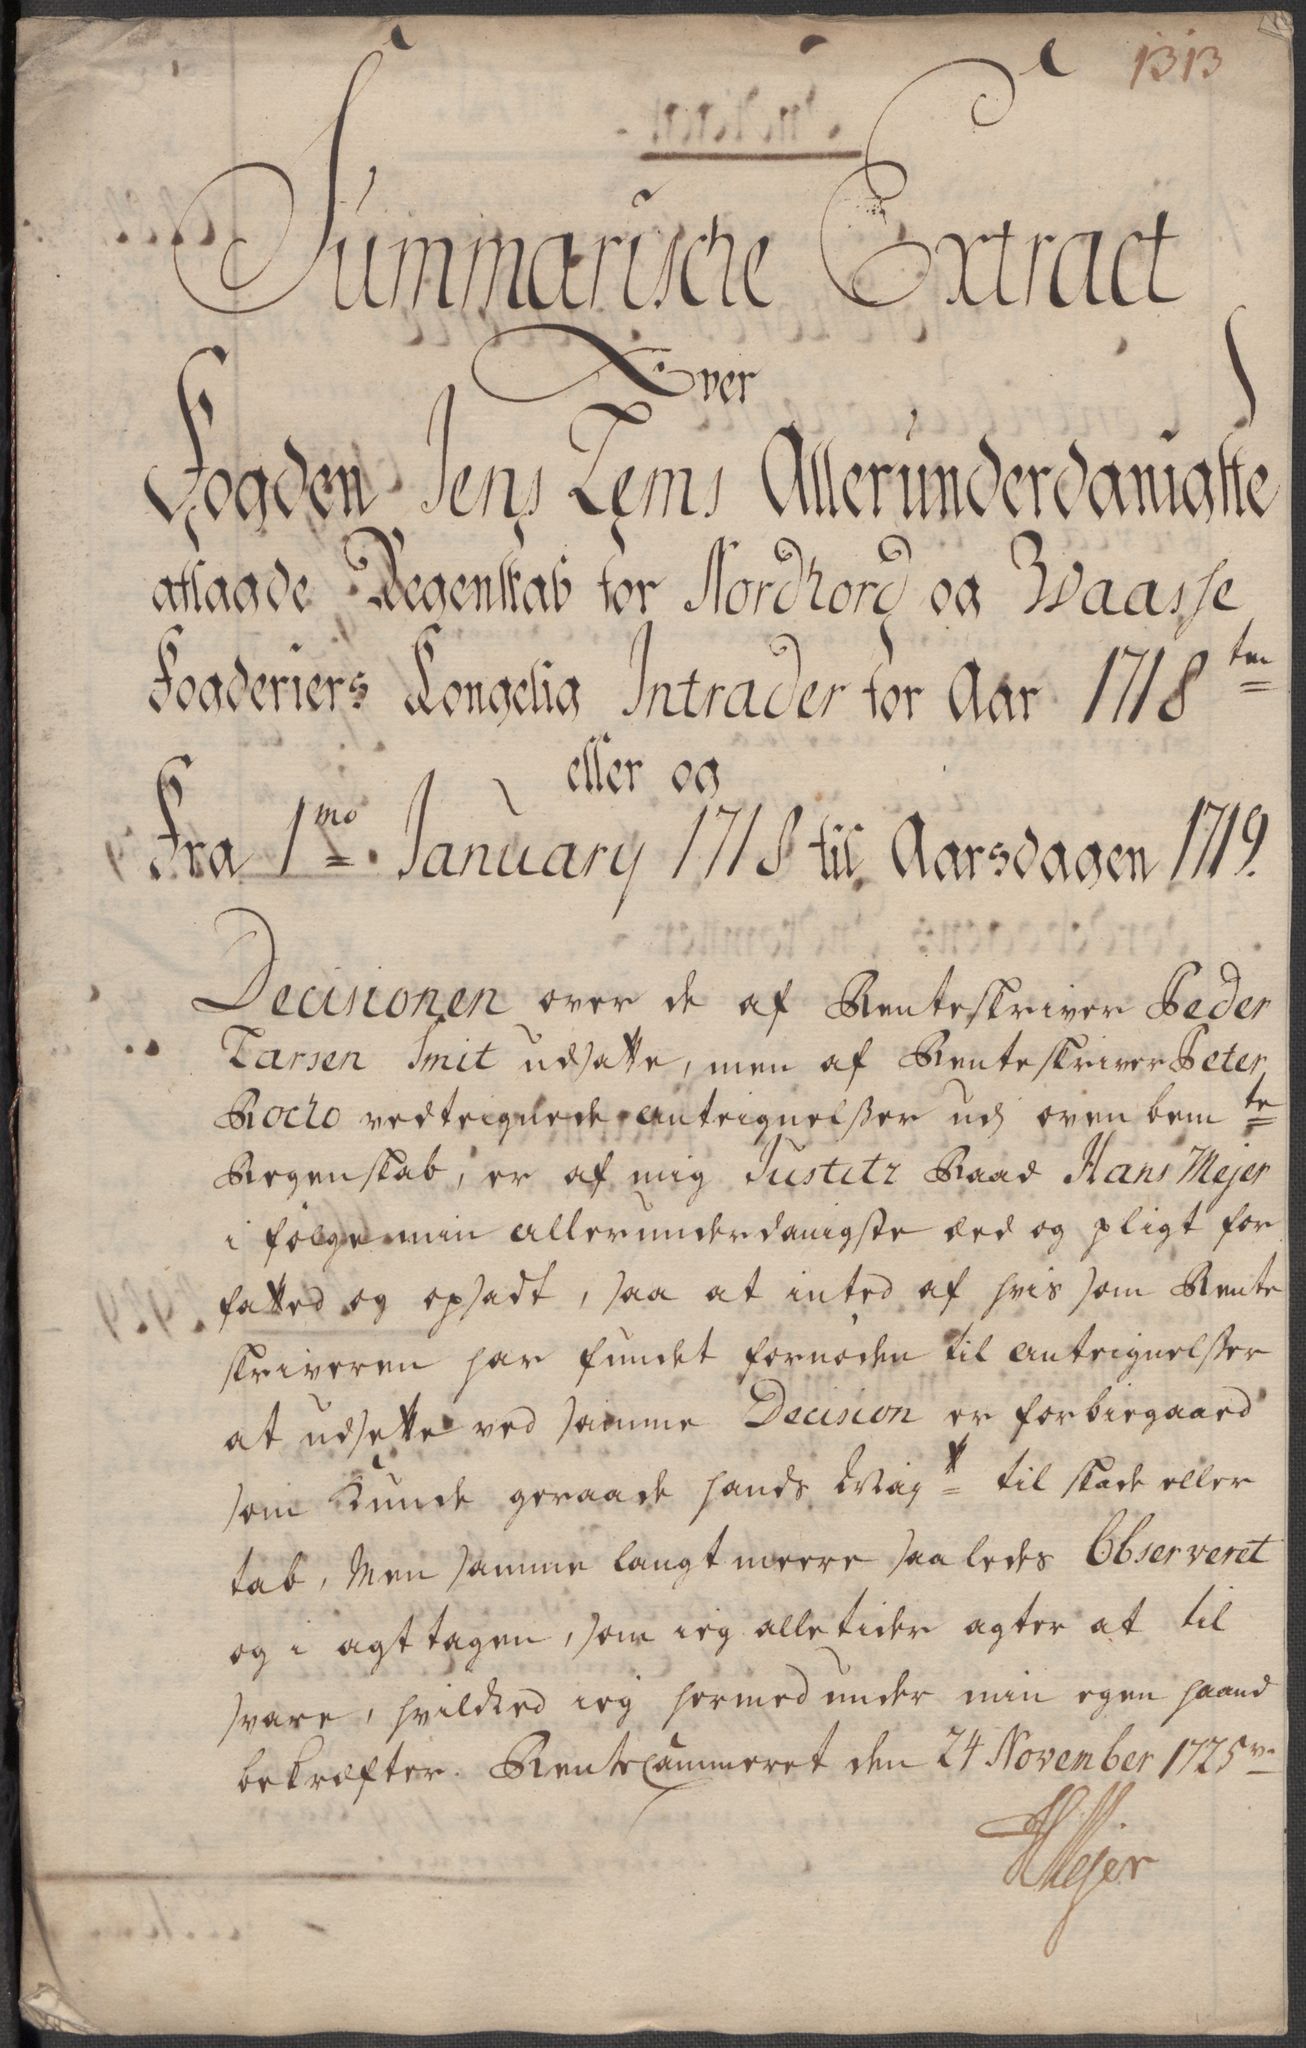 1313
Summarische Extract
Over
Fogden Jens Lems Allerunderdanigste
aflagde Regenskab for Nordhord og Waasse
Fogderiers Kongelig Intrader for Aar 1718 ten
eller og
Fra 1mo January 1718 til Aarsdagen 1719.
Decisionen over de af Renteskriver Peder
Larsen Smit udsatte, men af Renteskriver Peter
Rocho vedteignede anteignelsser udj oven bemte
Regenskab, er af mig Justitz Raad Hans Mejer
i følge min allerunderdanigste æed og pligt for
fatted og opsadt, saa at inted af hvis som Rente
skriveren har fundet fornøden til anteignelsser
at udsette ved samme Decision er forbiegaaed
som kunde geraade hands Maytt til skade eller
tab, Men samme langt meere saaledes Observeret
og i agt tagen, som ieg alletider agter at til
svare, hvilcked ieg hermed under min egen haand
bekræfter. RenteCammeret den 24 November 1725
HMejer